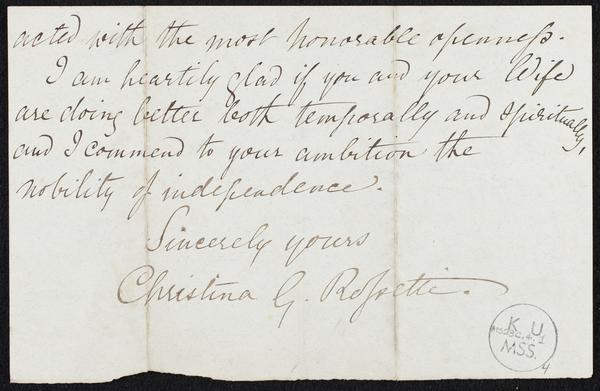 acted with the most honorable openness.
I am heartily glad if you and your Wife
are doing better both temporally and spiritually,
and I commend to your ambition the
nobility of independence.
Sincerely yours
Christina G. Rossetti.
K U
MSS.
4